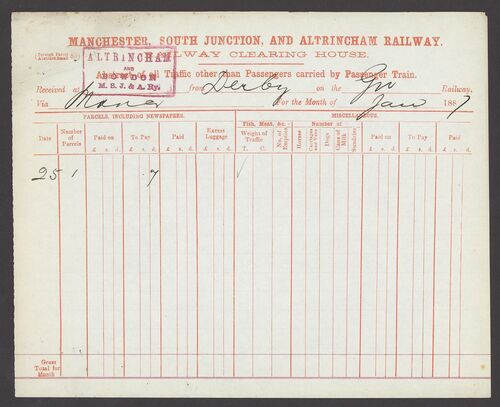 MANCHESTER, SOUTH JUNCTION, AND ALTRINCHAM RAILWAY.
RAILWAY CLEARING HOUSE.
ALTRINCHAM
AND
BOWDON
M. S. J. & A. Ry.
Abstract of all Traffic other than Passengers carried by Passenger Train.
Received at from Derby on the Railway.
Via For the Month of Jan 1887
PARCELS, INCLUDING NEWSPAPERS. Fish, Meat, &c. MISCELLANEOUS.
Date Number of Parcels Paid on To Pay Paid Excess Luggage Weight of Traffic No. of Empties Number of Horses Carriages and Vans Dogs Cans of Milk Sundries Paid on To Pay Paid
£ s. d. £ s. d. £ s. d. £ s. d. T. C. £ s. d. £ s. d. £ s. d.
25 1 . 7 ✓
Gross Total for Month